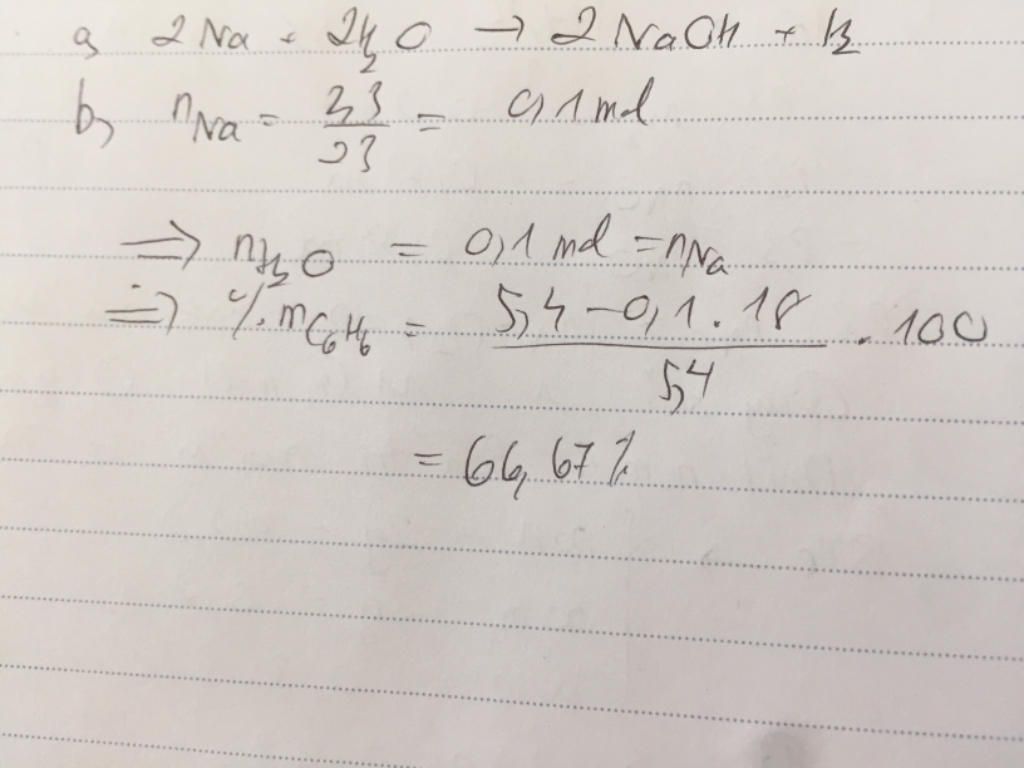 a, 2Na + 2H₂O → 2NaOH + H₂
b, nNa = 2,3/23 = 0,1 mol
⇒ nH₂O = 0,1 mol = nNa
⇒ %mC₆H₆ = (5,4 - 0,1 . 18)/5,4 . 100
= 66,67%